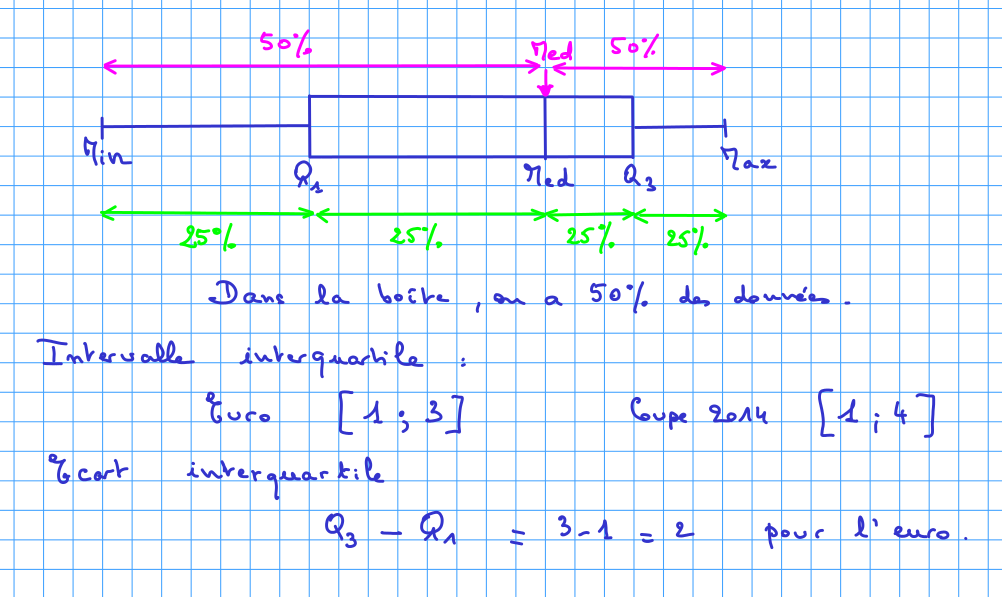 50% Med 50%
Min Q1 Med Q3 Max
25% 25% 25% 25%
Dans la boîte, on a 50% des données.
Intervalle interquartile :
Euro [1 ; 3] Coupe 2014 [1 ; 4]
Ecart interquartile
Q3 - Q1 = 3-1 = 2 pour l'euro.